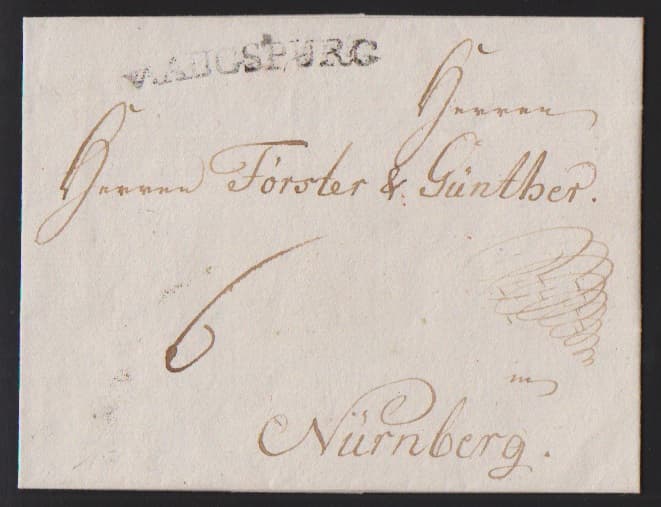 V.AUGSPURG
Herren
Herren Förster & Günther.
6
in
Nürnberg.